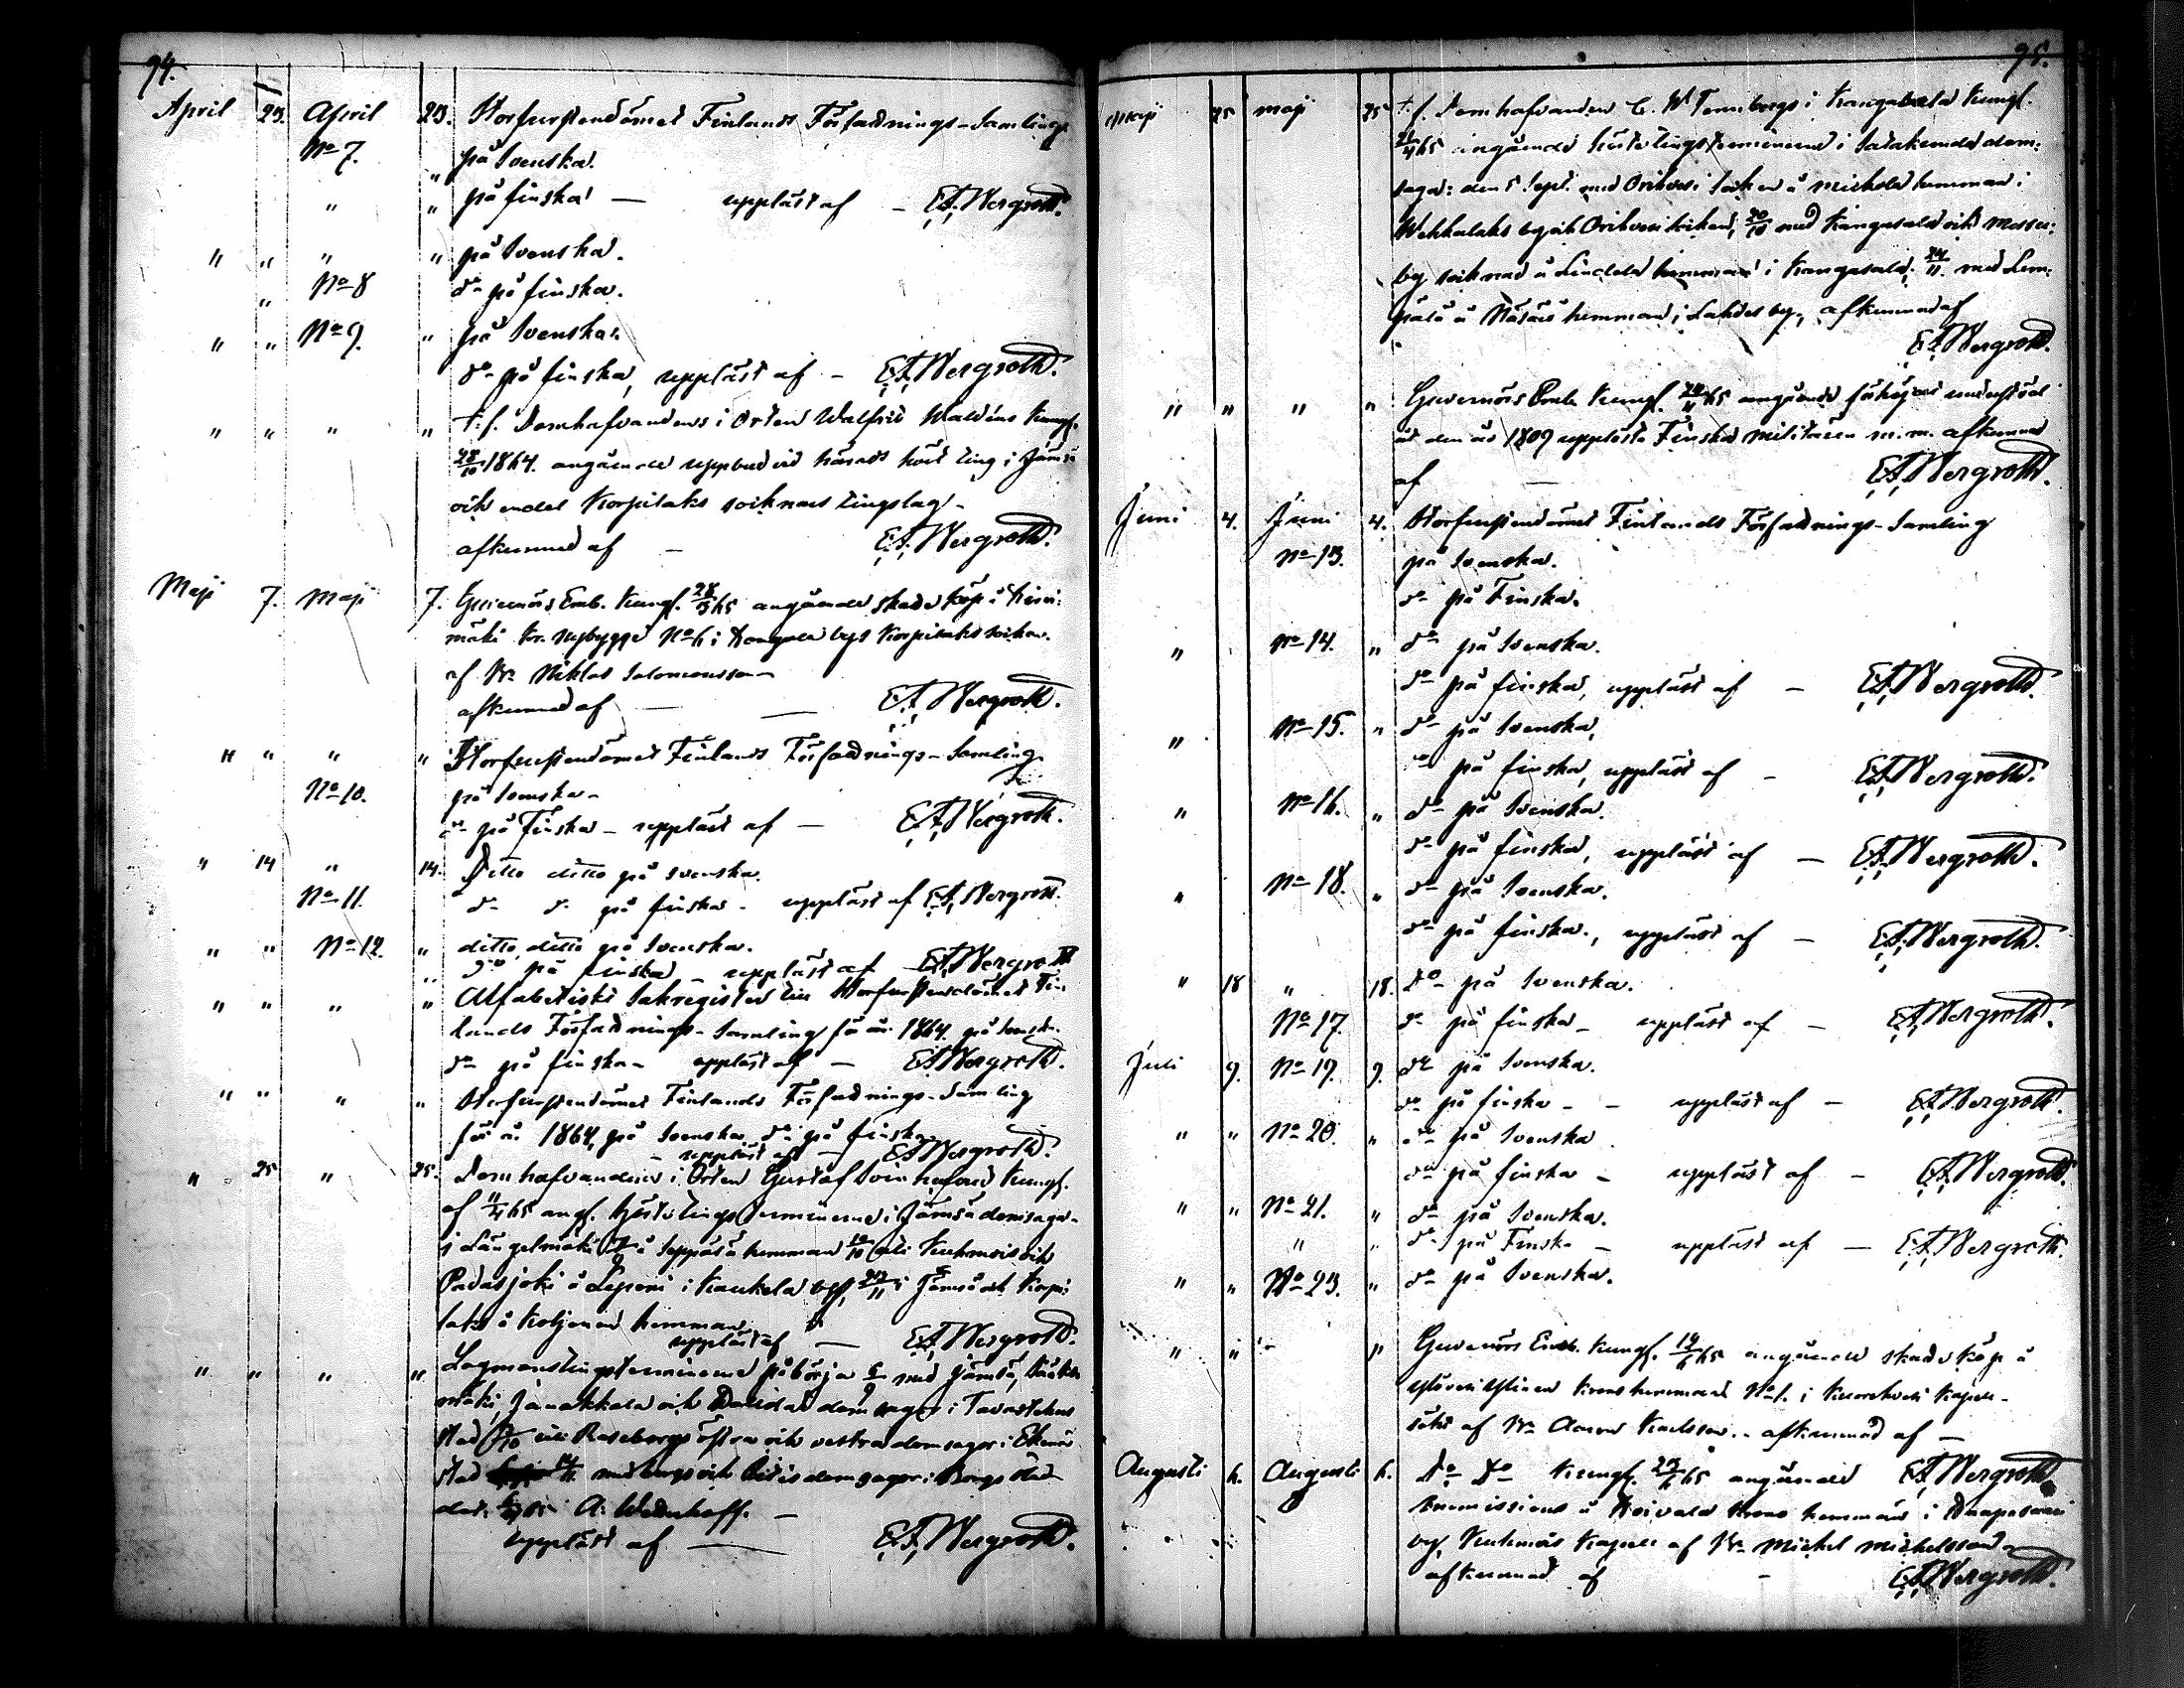 94.
April 23. April 23. Storfurstendömet Finlands Författnings-Samling
No 7. " på Svenska.
" " på finska — uppläst af — E.A. Wergroth.
" " " " på Svenska.
" No 8 do på finska.
" " No 9. " på Svenska.
do på finska, uppläst af — E.A. Wergroth.
" " " " t.f. Domhafvandens i Orten Walfrid Waldéns Kungj.
28/10 1864. angående uppbud vid härads höst ting i Jämsä
och endel Korpilaks socknars tingslag —
afkunnad af — E.A. Wergroth.
Maji 7. Maji 7. Guvernörs Emb. Kungj. 28/3 65 angående skatte köp å
mäki Kr. nybygge No 6 i bys Korpilaks socken
af Bn. Niklas Salomonsson —
afkunnad af — E.A. Wergroth.
" " " " Storfurstendömet Finlands Författnings-Samling
No 10. på Svenska —
do på Finska — uppläst af — E.A. Wergroth.
" 14 " 14. Ditto ditto på Svenska.
No 11. do do på finska — uppläst af E.A. Wergroth.
" " No 12. " ditto ditto på Svenska.
do på finska — uppläst af E.A. Wergroth
" " " " Alfabetiskt Sakregister till Storfurstendömet Fin-
lands Författnings-Samling för år 1864 på Svenska
do på finska — uppläst af — E.A. Wergroth.
" " " " Storfurstendömet Finlands Författnings-Samling
för år 1864, på Svenska do på finska
— uppläst af — E.A. Wergroth.
" 25 " 25. Domhafvanden i Orten Gustaf Svinhufvud Kungj.
af 11/4 65 angå. höstetings terminerne i Jämsä domsaga —
i Längelmäki å Seppälä hemman 10/10 Kuhmois och
Padasjoki å Leponi i Kaukela by, i Jämsä och Korpi-
laks å hemman
uppläst af — E.A. Wergroth.
" " " " Lagmanstingsterminerne påbörja med Jämsä,
mäki, Janakkala och domsagor i Tavastehus
stad Raseborgs östra och vestra domsagor i Ekenäs
stad med Borgå och domsagor i Borgå stad
dat. A. Wadenhoff. —
uppläst af — E.A. Wergroth.
95.
Maji 25 Maji 25 t.f. Domhafvanden C. W. Tennbergs i Kangasala Kungj.
angående höstetingsterminerne i Satakunda dom-
saga: den 5 Sept. med Orihvesi socken å hemman i
Wehkalaks by och Orihvesi socken, 20/10 med Kangasala och Messu-
by socknar å Liuckala hemman i Kangasala, 24/11 med Lem-
pälä å hemman i Lahdes by, afkunnad af
E.A. Wergroth.
" " " " Guvernörs Emb. Kungj. angående förhöjdt underhåll
åt den år 1809 upplösta Finska militären m.m. afkunnad
af — E.A. Wergroth.
Juni 4. Juni 4. Storfurstendömet Finlands Författnings-Samling
No 13. på Svenska.
do på Finska.
" No 14. " do på Svenska.
do på finska, uppläst af — E.A. Wergroth.
" No 15. " do på Svenska,
do på finska, uppläst af — E.A. Wergroth.
" No 16. " do på Svenska.
do på finska, uppläst af — E.A. Wergroth.
" No 18. " do på Svenska.
do på finska., uppläst af — E.A. Wergroth.
" 18 " 18. do på Svenska.
No 17. do på finska — uppläst af — E.A. Wergroth.
Juli 9. No 19. 9. do på Svenska.
do på finska — — uppläst af — E.A. Wergroth.
" " No 20. " do på Svenska
do på finska — uppläst af — E.A. Wergroth.
" " No 21. " do på Svenska.
" " do på Finska — uppläst af — E.A. Wergroth.
" " No 23. " do på Svenska.
" " " Guvernörs Emb. Kungj. 14/6 65 angående skatte köp å
Krono hemmanet No 1. i Kuorehvesi Kapell-
sokn af Bn. Aaron Karlsson — afkunnad af —
Augusti 6. Augusti 6. Do Do Kungj. 29/6 65 angående E.A. Wergroth
immissions å Koivula Krono hemman i
by, Kuhmois Kapell af Bn. Michel Michelsson —
afkunnad af — E.A. Wergroth.